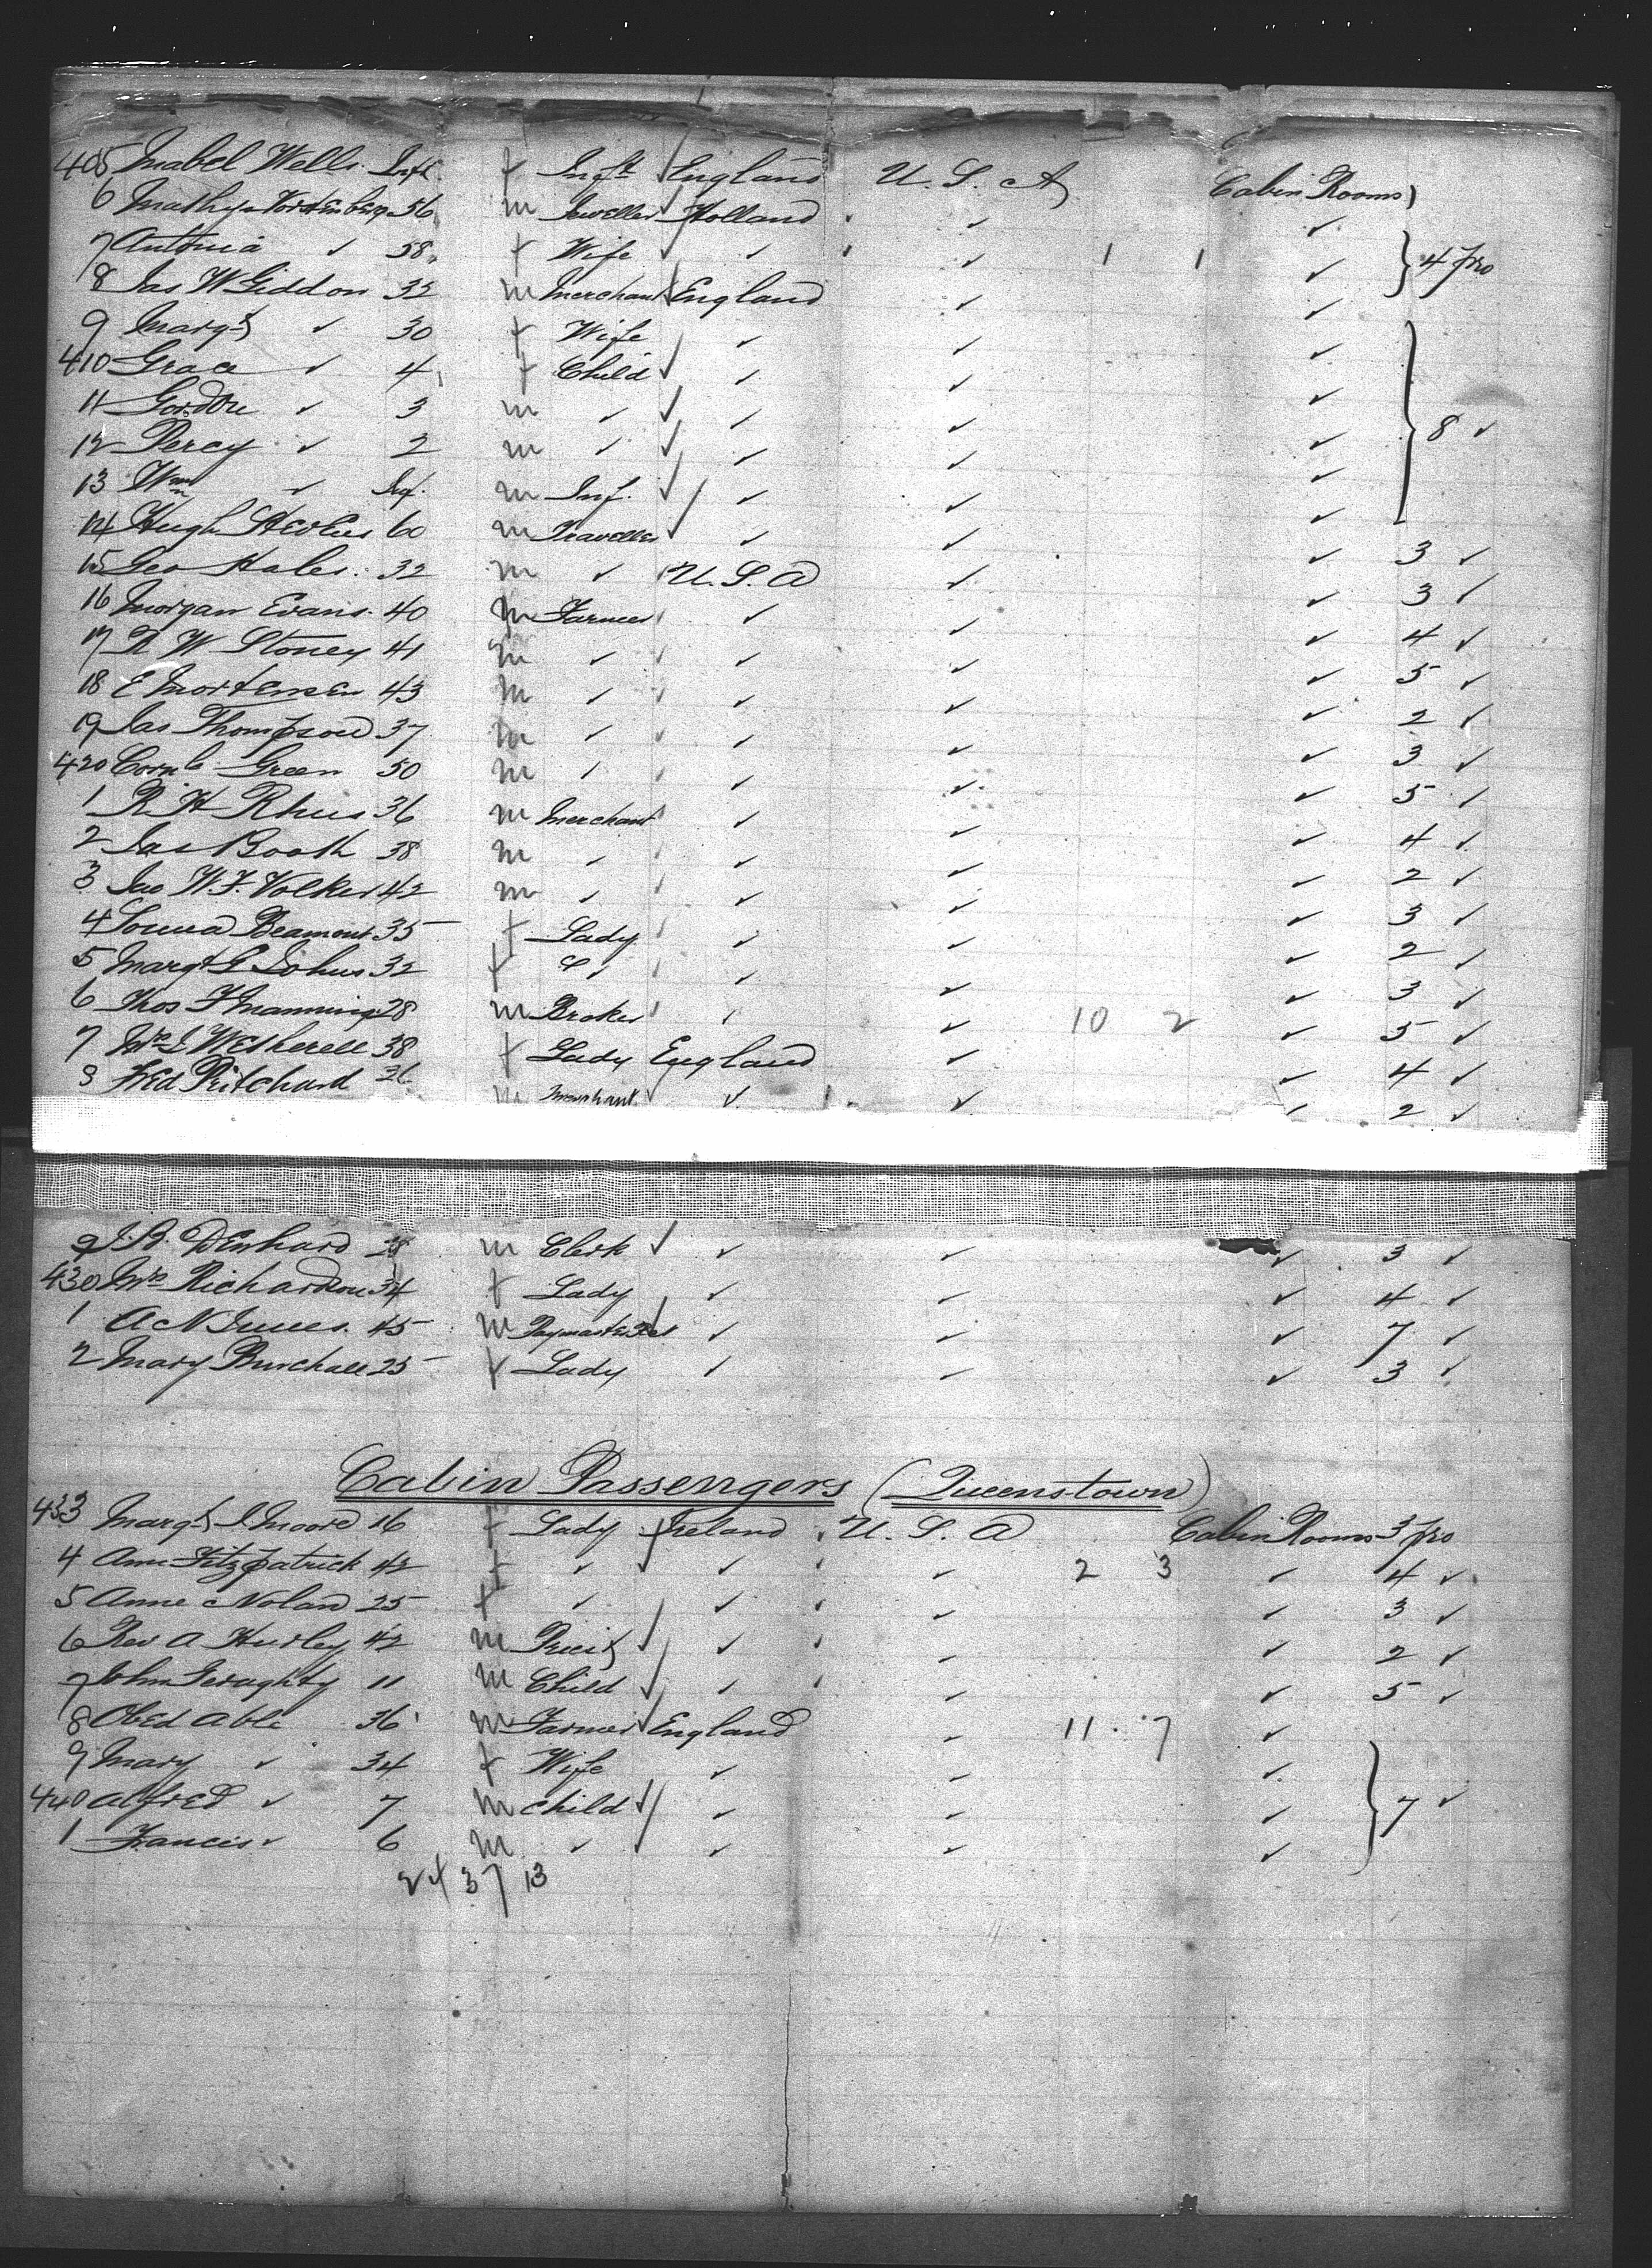 405 Mabel Wells Inft. f Inft England U. S. A Cabin Rooms
6 56 m Jeweller Holland ✓ ✓
7 Antonia ✓ 58 f Wife ✓ ✓ ✓ 1 1 ✓ } 4 pro
8 Jas W Giddon 32 m Merchant England ✓ ✓
9 Margt ✓ 30 f Wife ✓ ✓ ✓
410 Grace ✓ 4 f Child ✓ ✓ ✓ ✓
11 Gordon ✓ 3 m ✓ ✓ ✓ ✓ ✓ } 8 ✓
12 Percy ✓ 2 m ✓ ✓ ✓ ✓ ✓
13 Wm ✓ Inf. m Inf. ✓ ✓ ✓ ✓
14 Hugh 60 m Traveller ✓ ✓ ✓ ✓ 3 ✓
15 Geo Hales 32 m ✓ U. S. A ✓ ✓ 3 ✓
16 Morgan Evans 40 m Farmer ✓ ✓ ✓ 4 ✓
17 R W Stoney 41 m ✓ ✓ ✓ ✓ 5 ✓
18 E Mortensen 43 m ✓ ✓ ✓ ✓ 2 ✓
19 Jas Thompson 37 m ✓ ✓ ✓ ✓ 3 ✓
420 Green 50 m ✓ ✓ ✓ ✓ 5 ✓
1 R H 36 m Merchant ✓ ✓ ✓ 4 ✓
2 Jas Booth 38 m ✓ ✓ ✓ ✓ 2 ✓
3 W. F. Volker 42 m ✓ ✓ ✓ ✓ 3 ✓
4 Beamont 35 f Lady ✓ ✓ ✓ 2 ✓
5 Margt 32 f ✓ ✓ ✓ 3 ✓
6 Thos F Manning 28 m Broker ✓ ✓ 10 2 ✓ 5 ✓
7 Mrs Wetherell 38 f Lady England ✓ ✓ 4 ✓
8 Fred Pritchard m Merchant ✓ ✓ ✓ ✓ 2 ✓
9 28 m Clerk ✓ ✓ ✓ ✓ 3 ✓
430 Mrs Richardson 34 f Lady ✓ ✓ ✓ 4 ✓
1 A N 45 m Paymaster ✓ ✓ ✓ 7 ✓
2 Mary Burchall 25 f Lady ✓ ✓ ✓ 3 ✓
Cabin Passengers (Queenstown)
433 Margt J Moore 16 f Lady Ireland U. S. A Cabin Rooms 3 pro
4 Ann Fitzpatrick 42 f ✓ ✓ ✓ ✓ 2 3 ✓ 4 ✓
5 Anne Nolan 25 f ✓ ✓ ✓ ✓ ✓ 3 ✓
6 Rev A Hurley 42 m Priest ✓ ✓ ✓ ✓ 2 ✓
7 John Geraghty 11 m Child ✓ ✓ ✓ ✓ 5 ✓
8 Obed Able 36 m Farmer England ✓ 11 7 ✓
9 Mary ✓ 34 f Wife ✓ ✓ ✓
440 Alfred ✓ 7 m Child ✓ ✓ ✓ ✓ } 7 ✓
1 Francis ✓ 6 m ✓ ✓ ✓ ✓ ✓
24 37 13